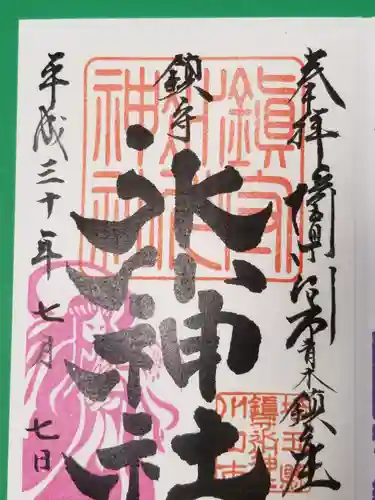 奉拝 埼玉県川口市青木鎮座
鎮守
氷川神社
平成三十年七月七日
鎮守
氷川
神社
埼玉県
鎮守氷川神社
川口市